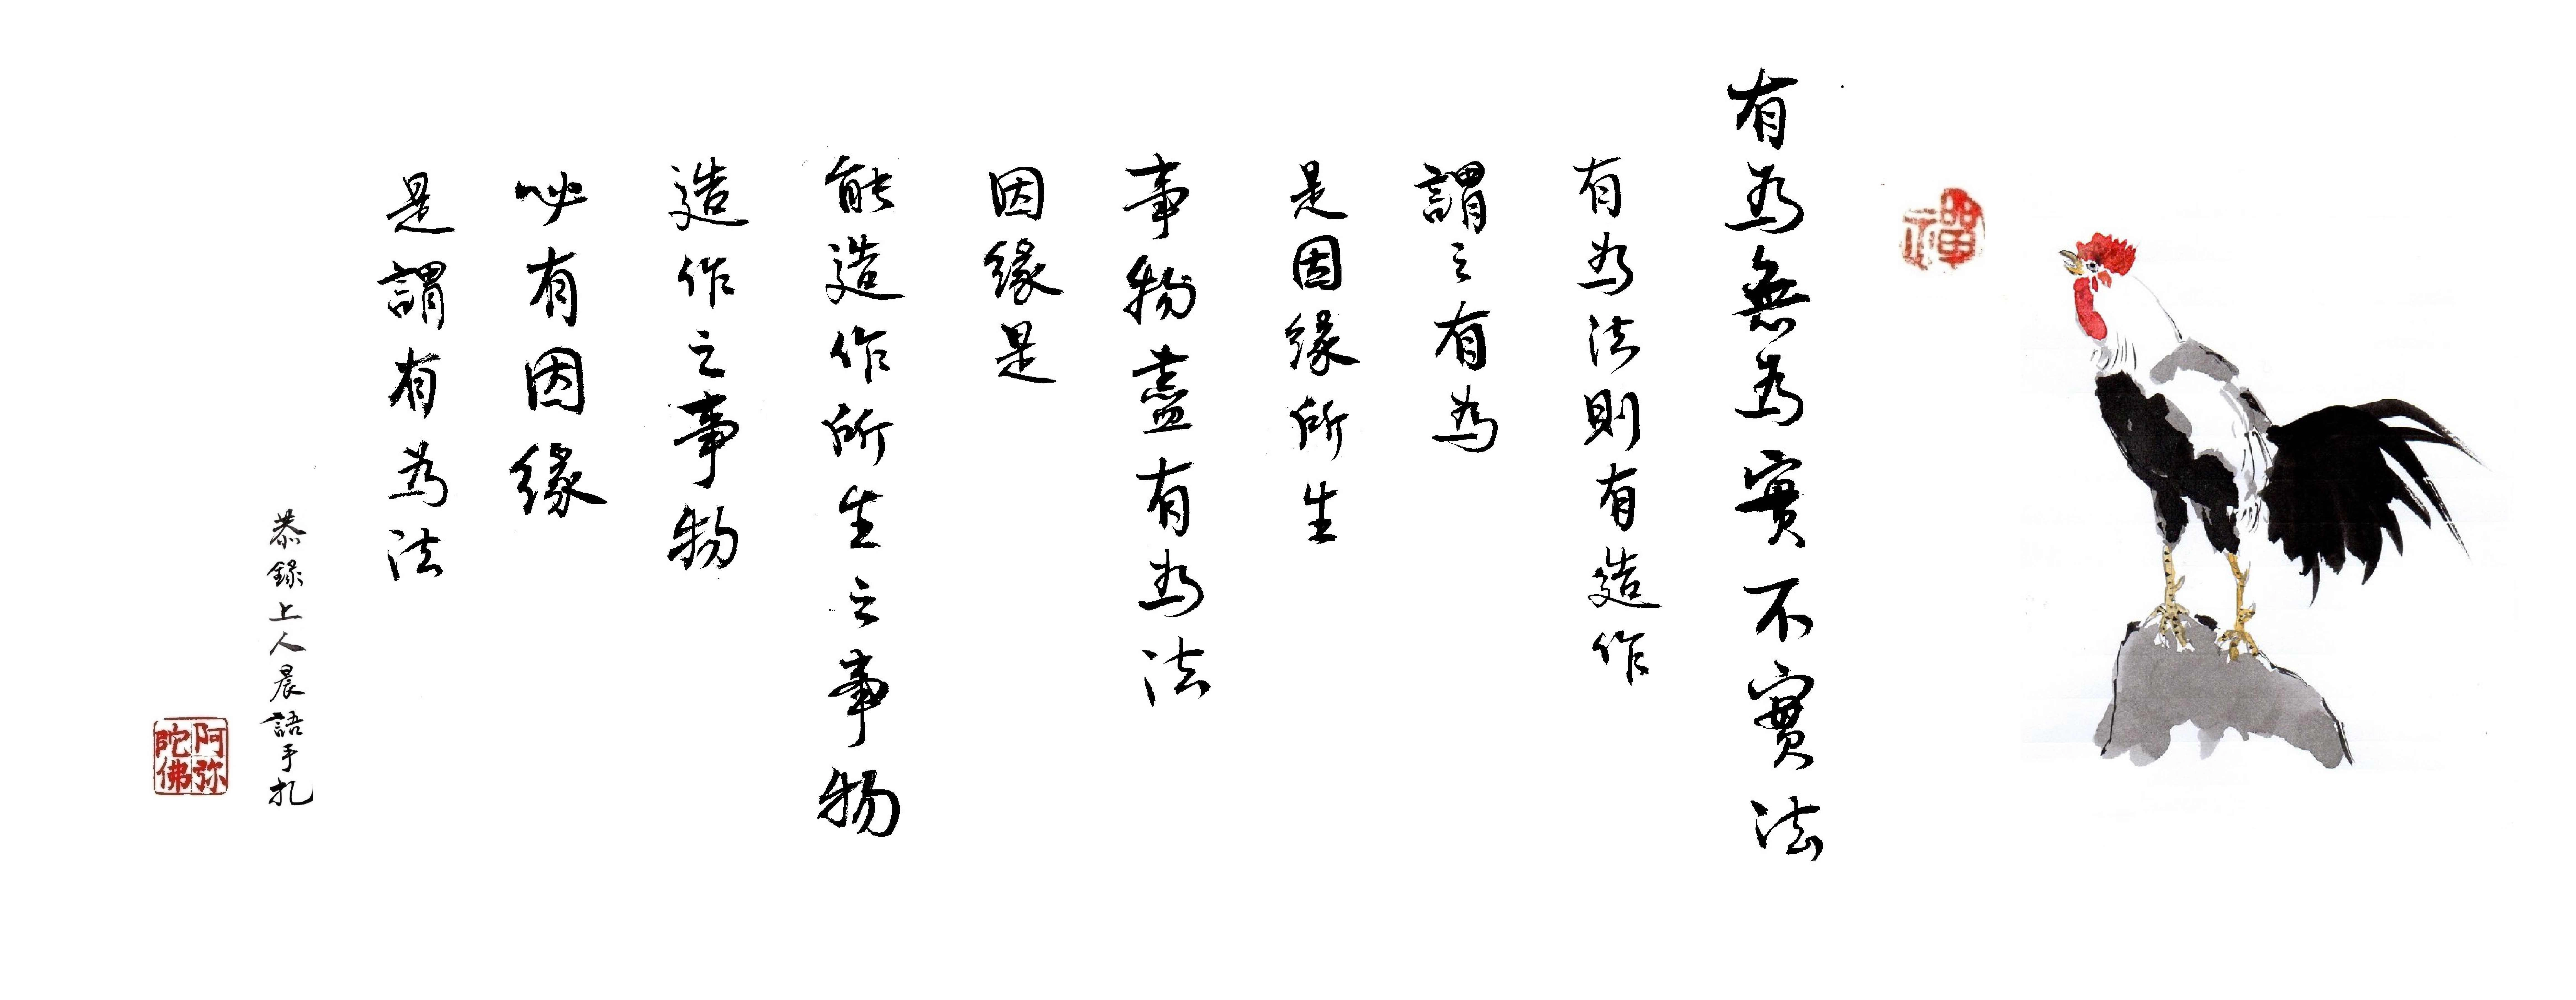 禪
有為無為實不實法
有為法則有造作
謂之有為
是因緣所生
事物盡有為法
因緣是
能造作所生之事物
造作之事物
必有因緣
是謂有為法
恭錄上人晨語手札
阿弥陀佛